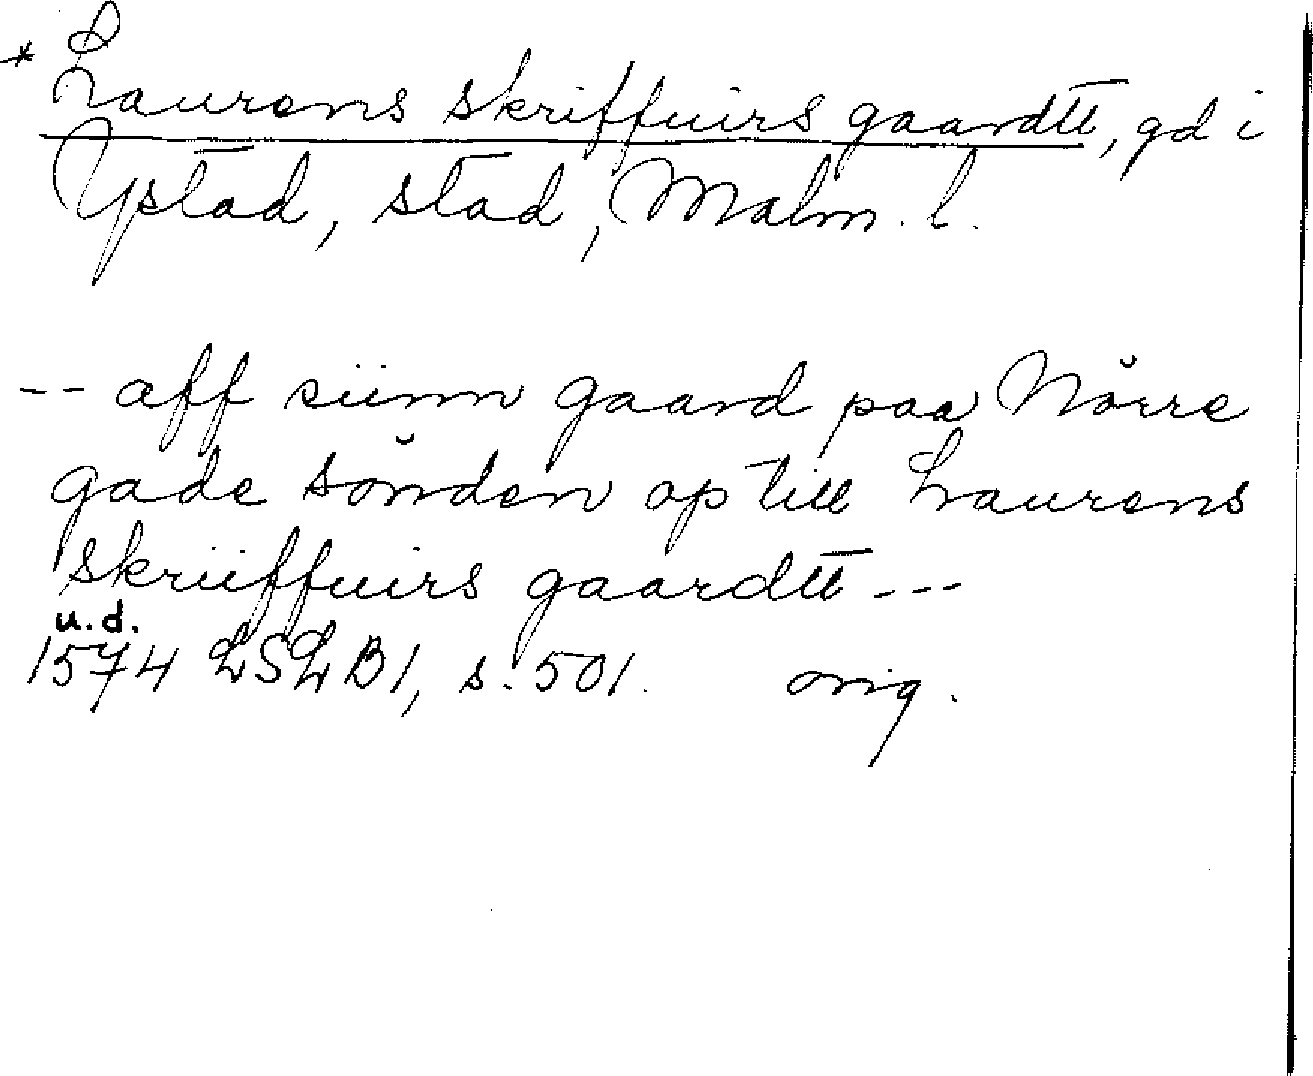 * Laurens skriffuirs gaardtt, gd i
Ystad, stad, Malm. l.
-- aff siinn gaard paa Nŏrre
gade sŏnden op till Laurens
skriiffuirs gaardtt ---
u.d.
1574 LSLB1, s. 501. orig.